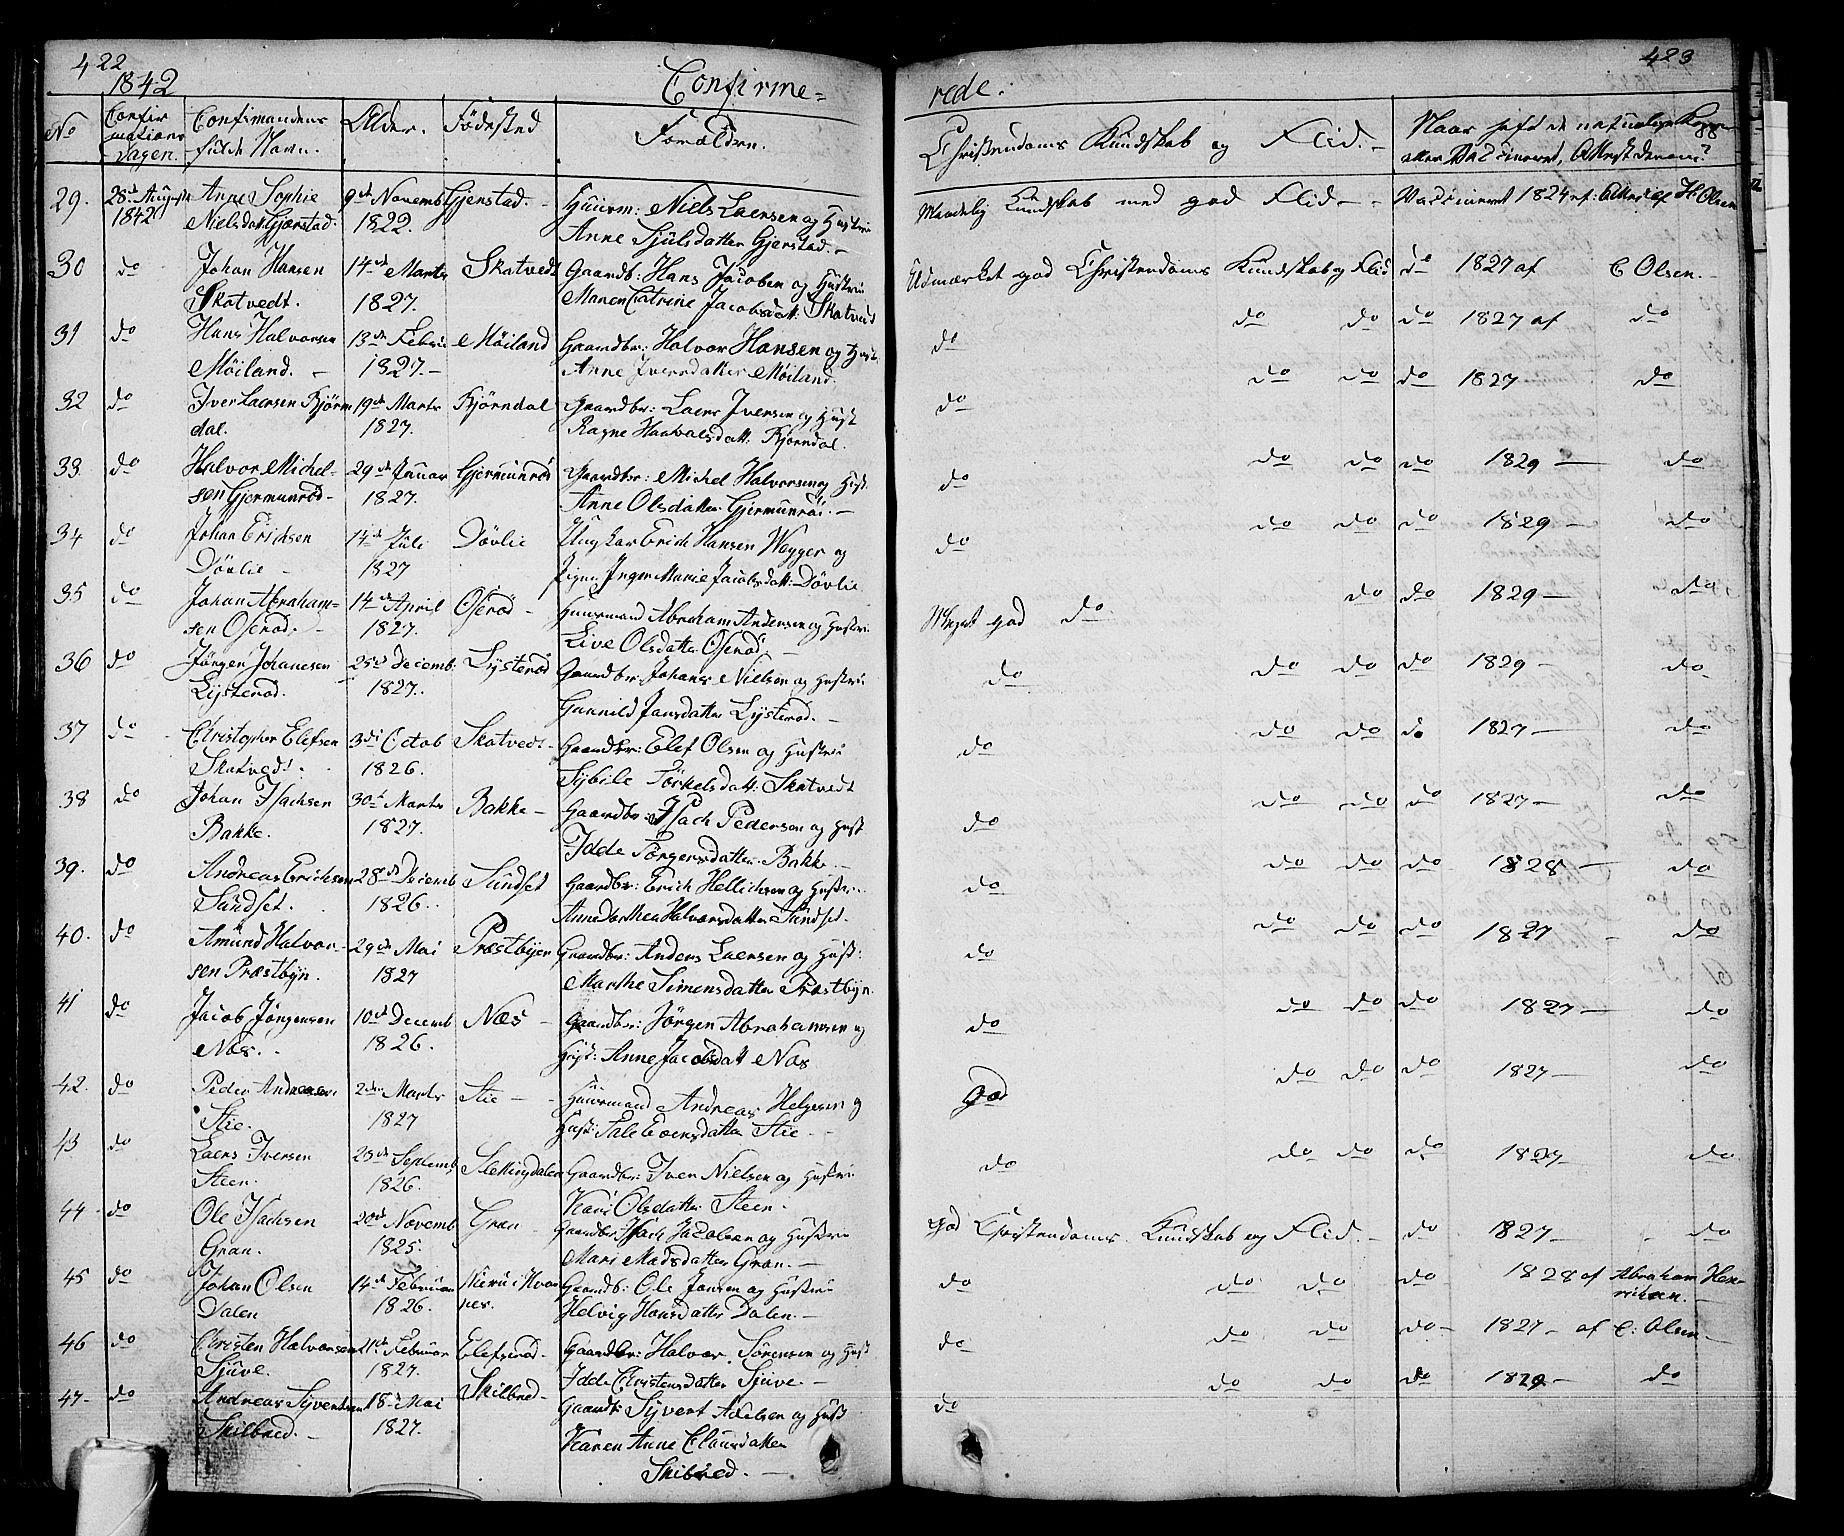 422
1842
Confirme=
No
Confir
mations
Dagen.
Confirmandens
fulde Navn.
Alder.
Födested
Forældre.
29. 28de August Anne Sophie 9de Novemb Gjerstad. Huusm: Niels Laersen og Hustru
1842 Nielsdatt Gjerstad. 1822. Anne Sjulsdatter Gjerstad.
30 do Johan Hansen 14de Marts Skatvedt Gaardb: Hans Jacobsen og Hustru
Skatvedt. 1827. Maren Catrine Jacobsdatt: Skatvedt
31 do Hans Halvorsen 13de Febru Möiland Gaardbr: Halvor Hansen og Hust
Möiland. 1827. Anne Iversdatter Möiland.
32 do Iver Laersen Kjörn 19de Marts Kjörndal Gaardbr: Laers Iversen og Hust
dal. 1827. Ragne Haavalsdatt: Kjörndal.
33. do Halvor Michel- 29de Januar Gjermunröd Gaardbr: Michel Halvorsen og Hust.
sen Gjermunröd. 1827. Anne Olsdatter Gjermunröd.
34 do Johan Erichsen 14de Juli Dövlie Ungkar Erich Hansen Wegger og
Dövlie 1827 Pigen Inger Marie Jacobsdatt: Dövlie
35 do Johan Abraham= 14de April Oseröd Huusmand Abraham Andersen og Hustru
sen Oseröd. 1827. Live Olsdatter Oseröd.
36 do Jörgen Johanesen 25de Decemb. Lysteröd Gaardbr: Johanes Nielsen og Hustru
Lysteröd. 1827. Gunnild Jansdatter Lysteröd.
37 do Christopher Elefsen 3die Octob Skatvedt Gaardbr: Elef Olsen og Hustru
Skatvedt. 1826. Sybile Törkelsdatt: Skatvedt
38 do Johan Isachsen 30te Marts Bakke Gaardbr: Isach Pedersen og Hust
Bakke. 1827. Idde Törgersdatter Bakke.
39. do Andreas Erichsen 28de Decemb Sundset Gaardbr: Erich Hellichsen og Hustru
Sundset. 1826. Anne Dorthea Halvorsdatter Sundset.
40. do Amund Halvor- 29de Mai Præstbyen Gaardbr: Anders Laersen og Hust:
sen Præstbyn. 1827 Marthe Simensdatter Præstbyn.
41 do Jacob Jörgensen 10de Decemb Næs Gaardbr: Jörgen Abrahamsen og
Næs. 1826. Hust: Anne Jacobsdatt Næs
42. do Peder Andresen 2den Marts Stie Huusmand Andreas Helgesen og
Stie. 1827 Hust:
43 do Laers Iversen 23de Septemb Slettingdalen Gaardbr: Iver Nielsen og Hustru
Steen. 1826. Kari Olsdatter Steen.
44 do Ole Isachsen 20de Novemb Gran Gaardbr: Isach Jacobsen og Hustru
Gran. 1825. Mari Madsdatter Gran.
45 do Johan Olsen 14de Februar Gaardb: Ole Jansen og Hustru
Dalen 1826. Helvig Hansdatter Dalen
46 do Christen Halvorsen 11te Februar Elefsröd Gaardbr: Halvor Sörensen og Hust
Sjuve. 1827. Idde Christensdatter Sjuve.
47 do Andreas Syvertsen 18de Mai Skilbred Gaardb: Syvert Axelsen og Hust
Skilbred. 1827. Karen Anne Clausdatter
Skibred.
423
rede.
88
Christendoms Kundskab og Flid.
Naar haft de naturlige Kopper
eller Vaccineret, Attest derom?
Maadelig Kundskab med god Flid Vaccineret 1824 af: Attest af H. Olsen
Udmærket god Christendoms Kundskab og Flid do 1827 af C Olsen.
do do do do 1827 af do
do do do do 1827 do
do do do do 1829 do
do do do do 1829 do
Meget god do do do 1829 do
do do do do 1829 do
do do do do 1827 do
do do do do 1827 do
do do do do 1828 do
do do do do 1827 do
do do do do 1827 do
god do do do 1827 do
do do do do 1827 do
god Christendoms Kundskab og Flid. do 1827 do
do do do do 1828 af Abraham Hen-
richsen.
do do do do 1827 af C: Olsen
do do do do 1829 do